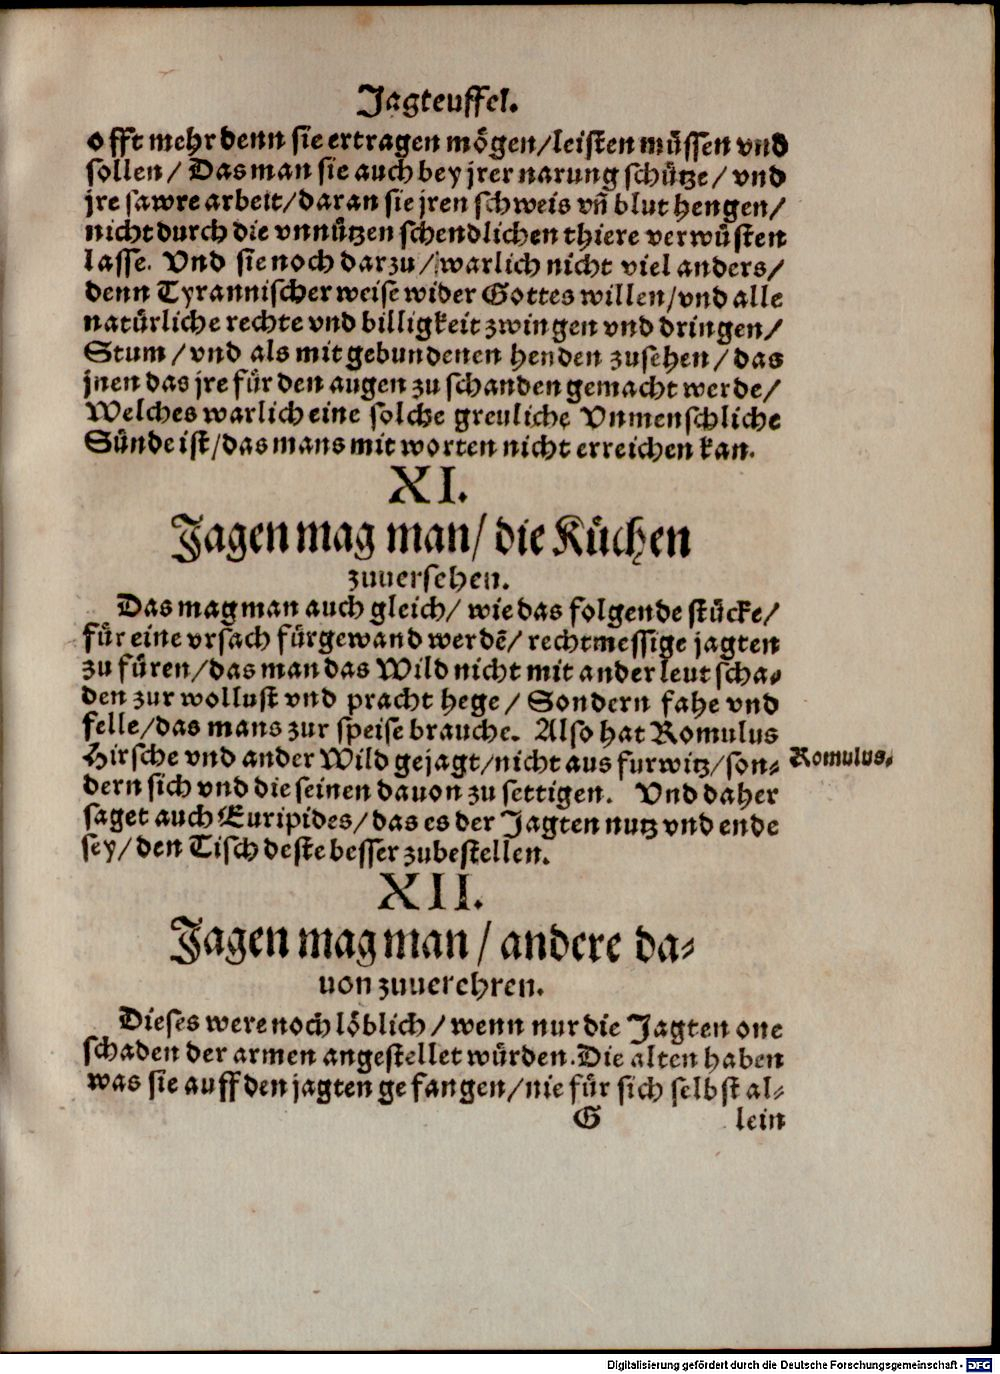 Jagteuffel.
offt mehr denn sie ertragen mögen/leisten müssen vnd
sollen/ Das man sie auch bey jrer narung schütze/ vnd
jre sawre arbeit/daran sie jren schweis vñ blut hengen/
nicht durch die vnnützen schendlichen thiere verwüsten
lasse. Vnd sie noch darzu/ warlich nicht viel anders/
denn Tyrannischer weise wider Gottes willen/vnd alle
natürliche rechte vnd billigkeit zwingen vnd dringen/
Stum/vnd als mit gebundenen henden zusehen/das
jnen das jre für den augen zu schanden gemacht werde/
Welches warlich eine solche greuliche Vnmenschliche
Sünde ist/das mans mit worten nicht erreichen kan.
XI.
Jagen mag man/ die Küchen
zuuersehen.
Das mag man auch gleich/ wie das folgende stücke/
für eine vrsach fürgewand werdē/ rechtmessige jagten
zu füren/das man das Wild nicht mit ander leut scha-
den zur wollust vnd pracht hege/ Sondern fahe vnd
felle/das mans zur speise brauche. Also hat Romulus
Hirsche vnd ander Wild gejagt/nicht aus furwitz/son-
dern sich vnd die seinen dauon zu settigen. Vnd daher
saget auch Euripides/das es der Jagten nutz vnd ende
sey/den Tisch deste besser zubestellen.
Romulus.
XII.
Jagen mag man/ andere da-
uon zuuerehren.
Dieses were noch löblich/wenn nur die Jagten one
schaden der armen angestellet würden. Die alten haben
was sie auff den jagten gefangen/nie für sich selbst al-
G lein
Digitalisierung gefördert durch die Deutsche Forschungsgemeinschaft - DFG